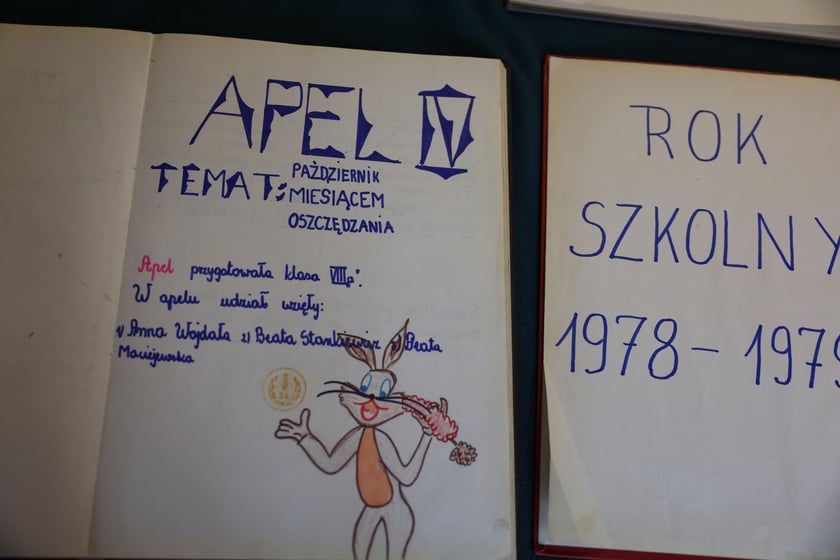 APEL IV
TEMAT: PAŹDZIERNIK
MIESIĄCEM
OSZCZĘDZANIA
Apel przygotowała klasa VIII".
W apelu udział wzięły:
1) Anna Wojdała 2) Beata Stankiewicz 3) Beata
Maciejewska
ROK
SZKOLNY
1978-1979